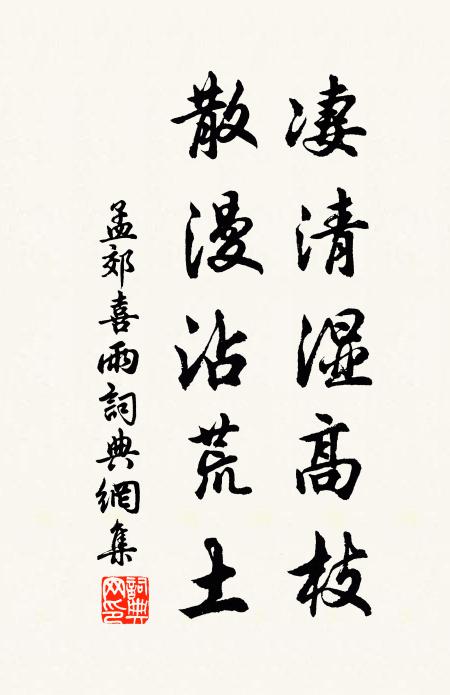 凄清湿高枝
散漫沾荒土
孟郊喜雨詞典網集
詞典網印